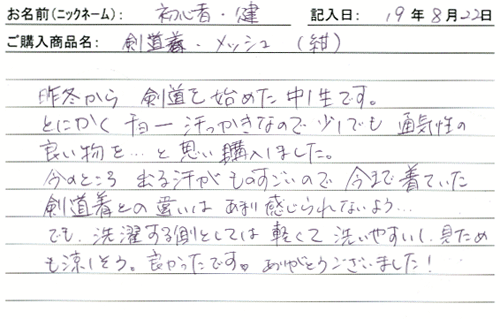 お名前(ニックネーム): 初心者・健 記入日: 19年8月22日
ご購入商品名: 剣道着・メッシュ (紺)
昨冬から 剣道を始めた中1生です。
とにかく チョー汗っかきなので 少しでも 通気性の
良い物を…と思い購入しました。
今のところ 出る汗が ものすごいので 今まで着ていた
剣道着との違いは あまり感じられないよう…
でも、洗濯する側としては 軽くて 洗いやすいし、見ため
も涼しそう。良かったです。ありがとうございました!